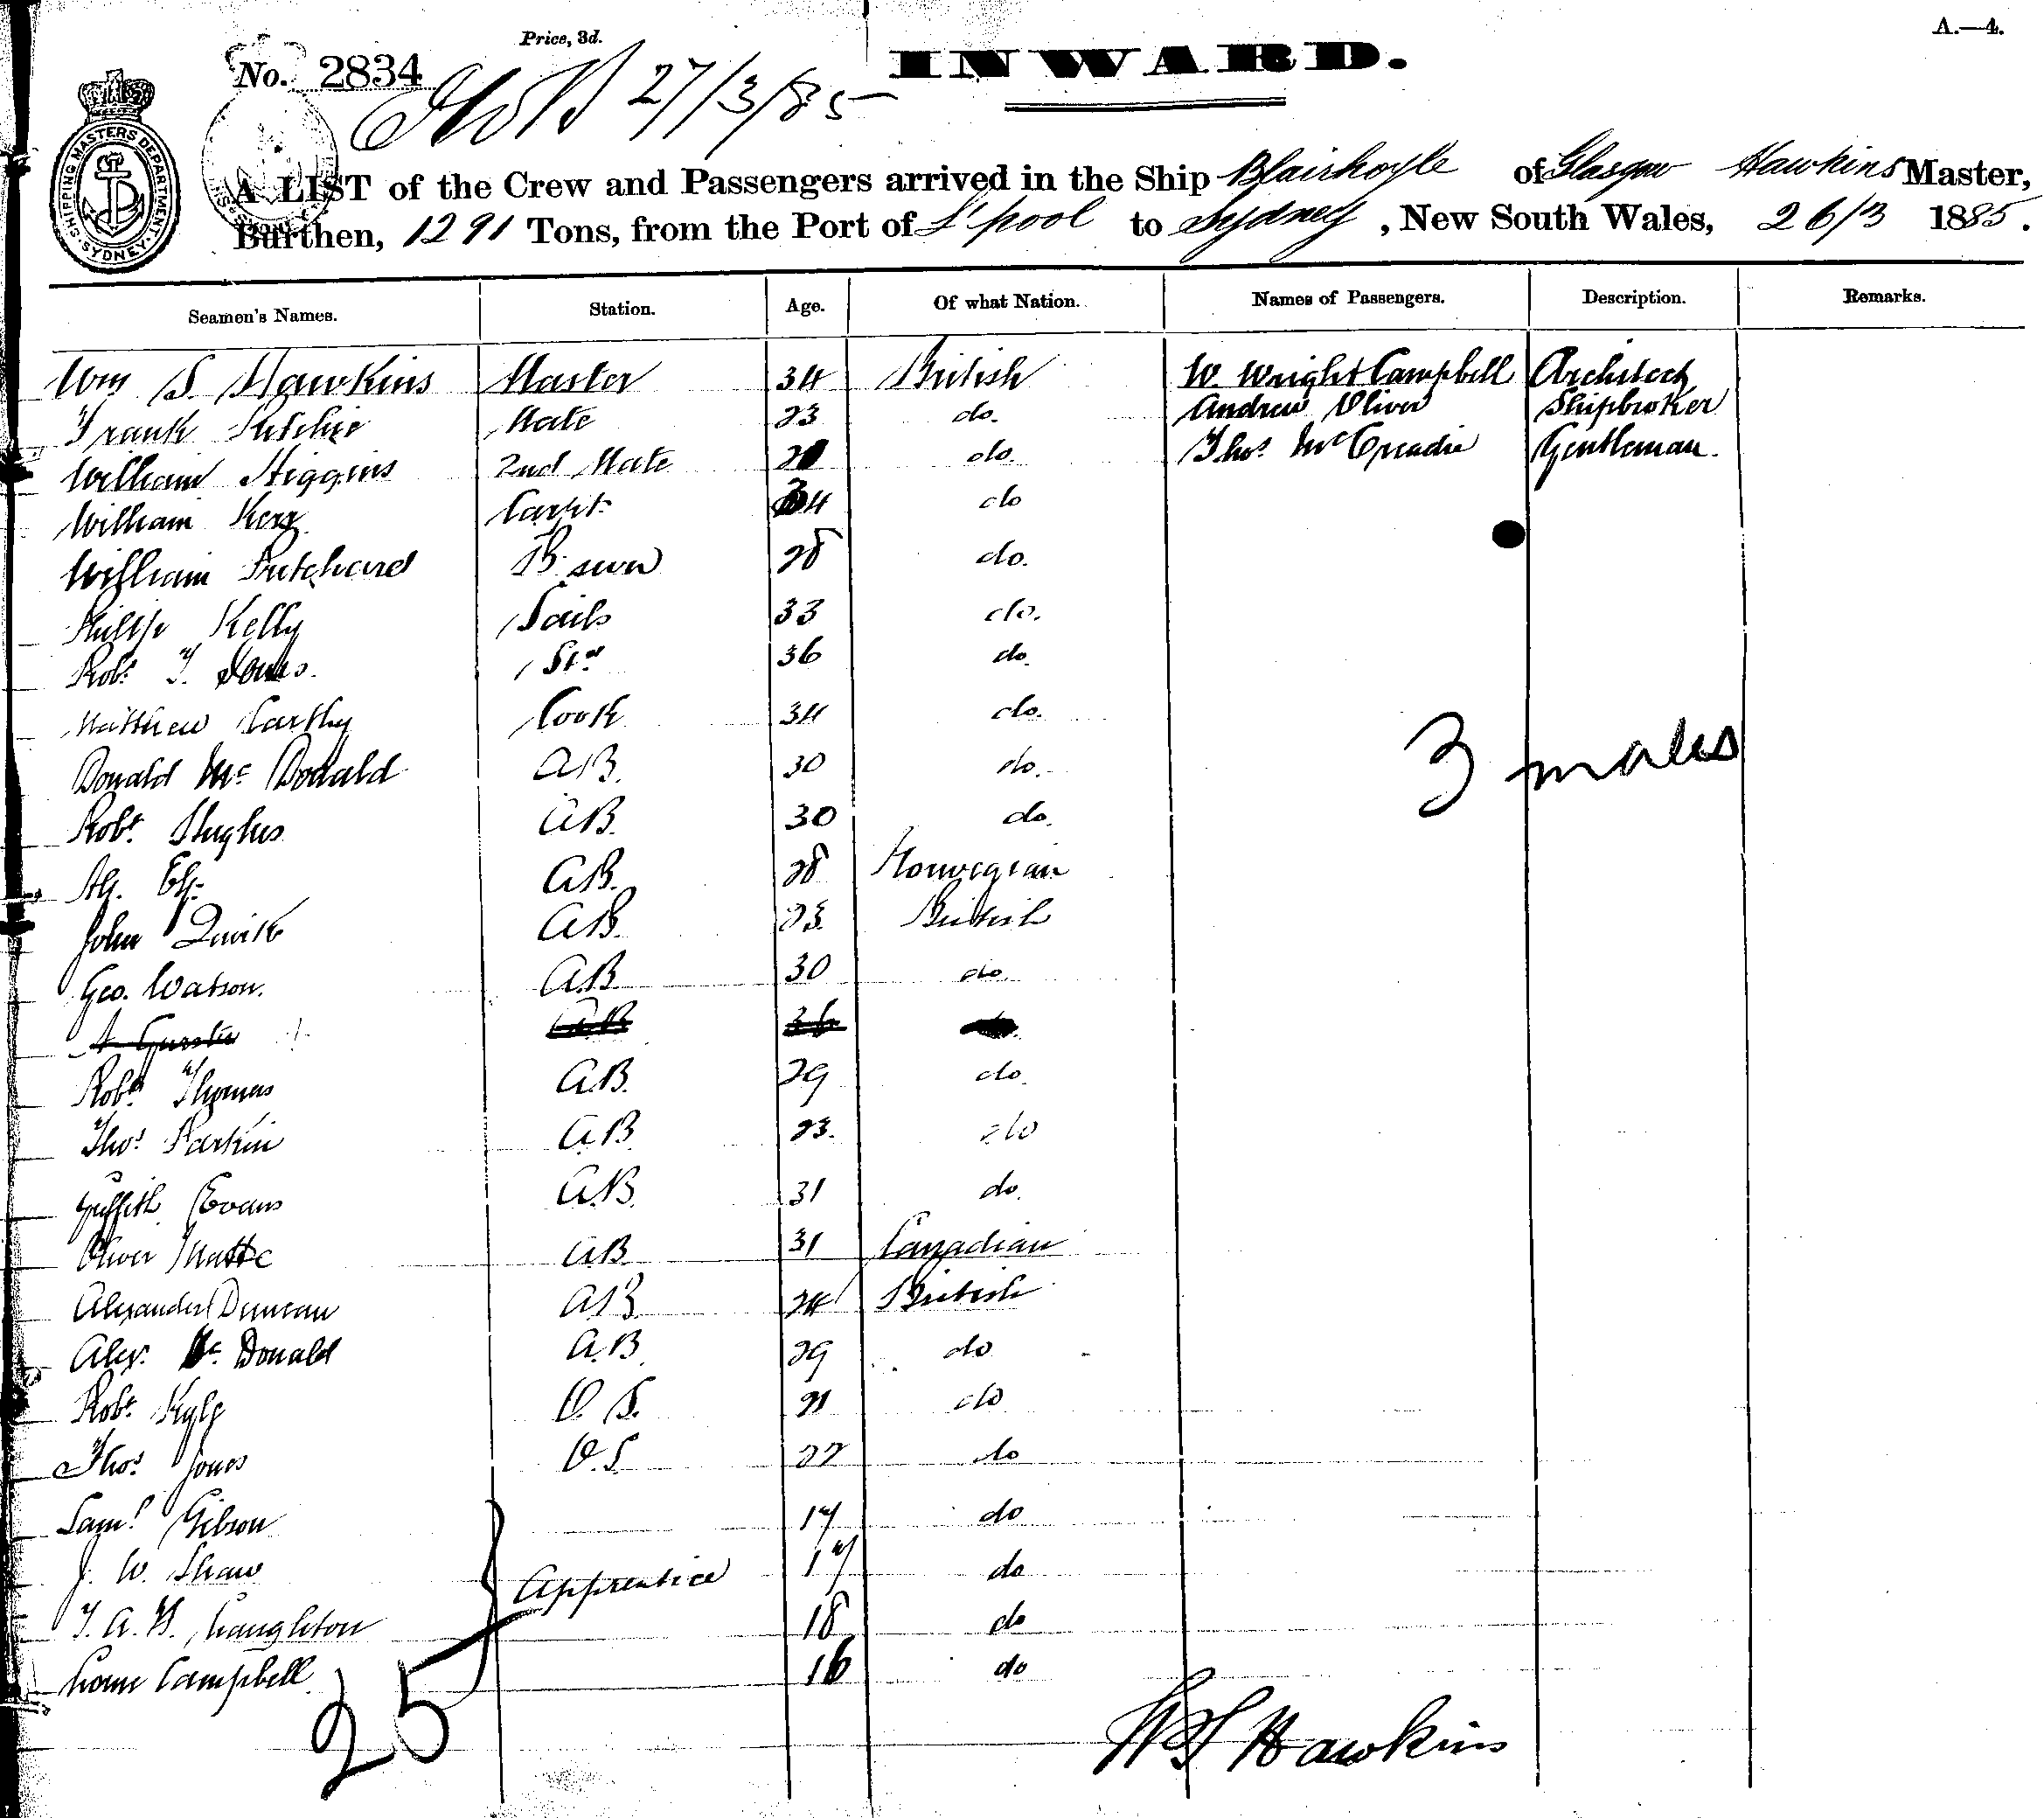 A.—4.
Price, 3d.
No. 2834
INWARD.
27/3/85
SHIPPING MASTERS DEPARTMENT SYDNEY
A LIST of the Crew and Passengers arrived in the Ship Blairhoyle of Glasgow Hawkins Master,
Burthen, 1291 Tons, from the Port of L'pool to Sydney, New South Wales, 26/3 1885.
Seamen's Names. Station. Age. Of what Nation. Names of Passengers. Description. Remarks.
Wm S. Hawkins Master 34 British W. Wright Campbell Architect
Frank Ritchie Mate 23 do. Andrew Oliver Shipbroker
William Higgins 2nd Mate do Thos. McCreadie Gentleman.
William Kerr Carptr 34 do
William Pritchard B'swn 28 do.
Philip Kelly Sails 33 do.
Robt. T. Jones. Std 36 do.
Matthew Carthy Cook 34 do.
3 males
Donald Mc Donald A.B. 30 do.
Robt. Hughes A.B. 30 do.
A.B. 28 Norwegian
John Quirk A.B. 23. British
Geo. Watson. A.B. 30 do.
A.B. 36
Robt. Thomas A.B. 29 do.
Thos. Parkin A.B. 23. do
Griffith Evans A.B. 31 do.
Oliver Matte A.B. 31 Canadian
Alexander Duncan A.B. 24 British
Alex. Mc Donald A.B. 29 do
Robt. Kyle O.S. 21 do
Thos. Jones O.S. 22 do
Saml. Gibson 17 do
J. W. Shaw Apprentice 17 do
T. A. H. Langhton 18 do
Lorne Campbell. 16 do
25
WS Hawkins